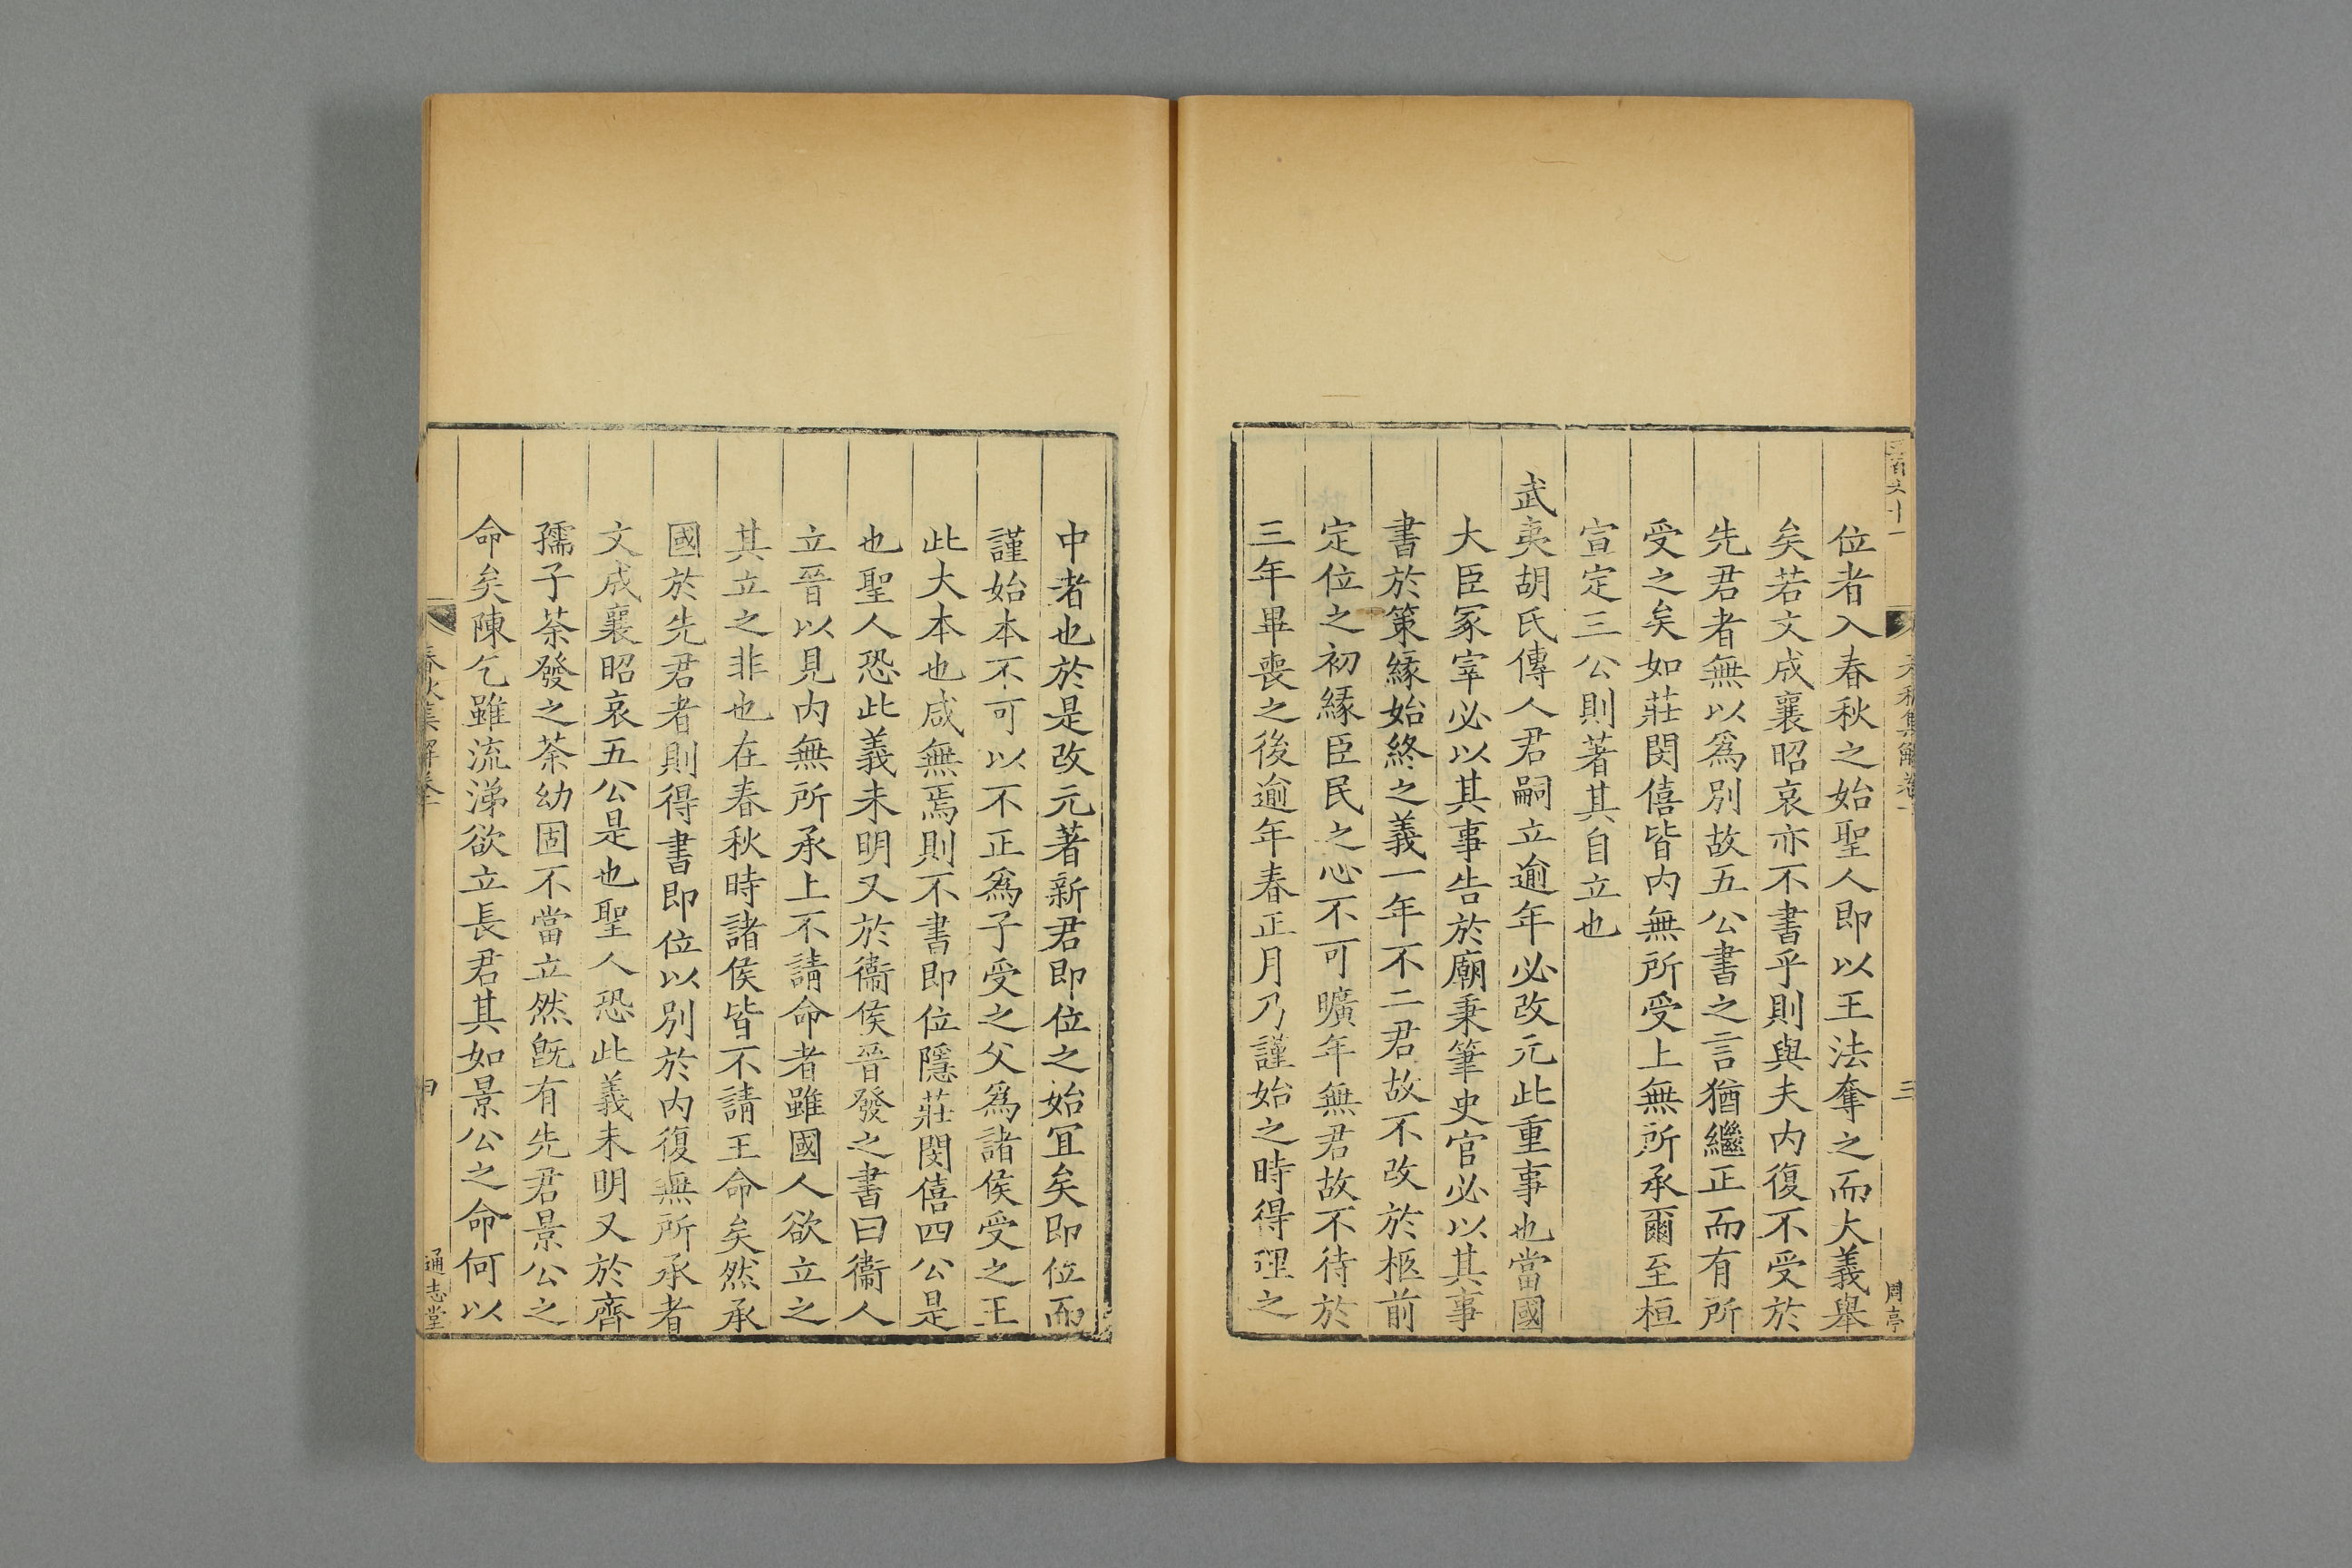 位者入春秋之始聖人即以王法奪之而大義舉
矣若文成襄昭哀亦不書乎則與夫内復不受於
先君者無以爲别故五公書之言猶繼正而有所
受之矣如莊閔僖皆内無所受上無所承爾至桓
宣定三公則著其自立也
武夷胡氏傳人君嗣立逾年必改元此重事也當國
大臣冢宰必以其事告於廟秉筆史官必以其事
書於策緣始終之義一年不二君故不改於柩前
定位之初緣臣民之心不可曠年無君故不待於
三年畢喪之後逾年春正月乃謹始之時得理之
三
周亭
中者也於是改元著新君即位之始冝矣即位而
謹始本不可以不正爲子受之父爲諸侯受之王
此大本也咸無焉則不書即位隱莊閔僖四公是
也聖人恐此義未明又於衞侯晉發之書曰衞人
立晉以見内無所承上不請命者雖國人欲立之
其立之非也在春秋時諸侯皆不請王命矣然承
國於先君者則得書即位以别於内復無所承者
文成襄昭哀五公是也聖人恐此義未明又於齊
孺子荼發之荼幼固不當立然旣有先君景公之
命矣陳乞雖流涕欲立長君其如景公之命何以
春秋集解卷一
通志堂